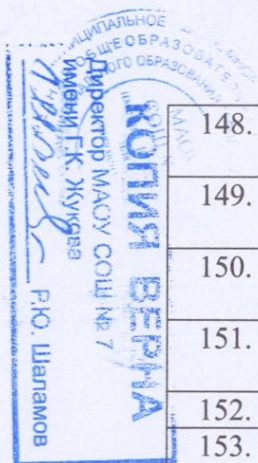 МУНИЦИПАЛЬНОЕ
ОБЩЕОБРАЗОВАТЕ
НОГО ОБРАЗОВАНИЯ
КОПИЯ ВЕРНА
Директор МАОУ СОШ № 7
имени Г.К. Жукова
Р.Ю. Шаламов
148.
149.
150.
151.
152.
153.